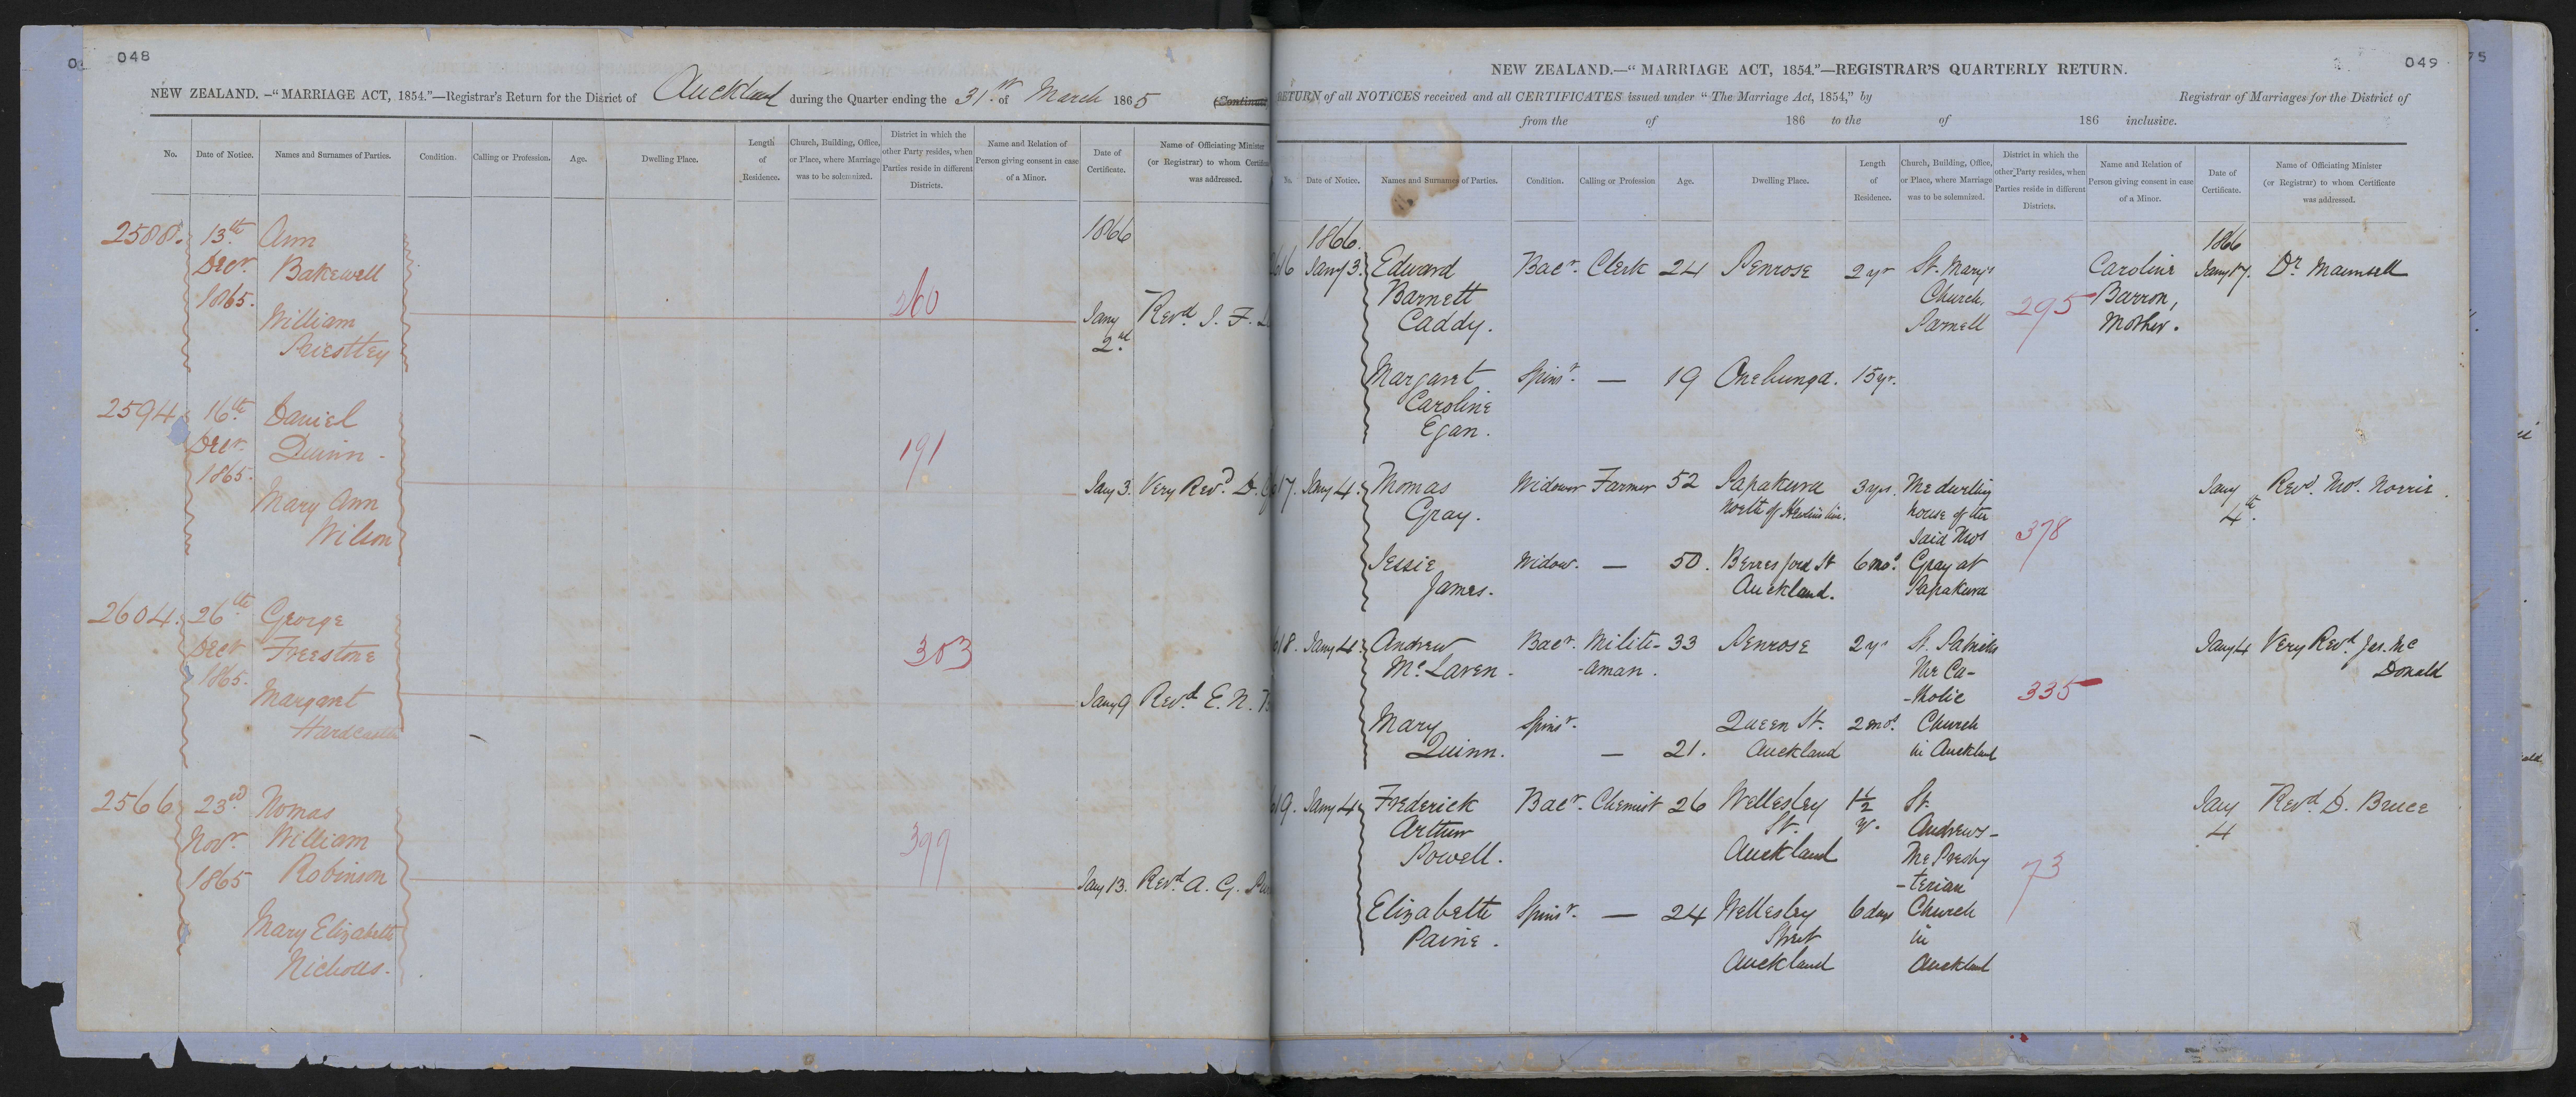 048
NEW ZEALAND.—"MARRIAGE ACT, 1854."—Registrar's Return for the District of Auckland during the Quarter ending the 31st of March 1865 (Continued
No. Date of Notice. Names and Surnames of Parties. Condition. Calling or Profession. Age. Dwelling Place. Length of Residence. Church, Building, Office, or Place, where Marriage was to be solemnized. District in which the other Party resides, when Parties reside in different Districts. Name and Relation of Person giving consent in case of a Minor. Date of Certificate. Name of Officiating Minister (or Registrar) to whom Certifica was addressed.
2588. 13th Ann 1866
Decr. Bakewell
1865. 260
William Jany Revd. J. F.
Priestley 2nd
2594 16th Daniel
Decr. Quinn - 191
1865.
Mary Ann Jany 3. Very Revd. D.
Wilson
2604. 26th George
Decr Freestone 303
1865.
Margaret Jany 9 Revd. E. N.
Hardcastle
2566 23rd Thomas
Novr. William 399
1865 Robinson Jany 13. Revd. A. G.
Mary Elizabeth
Nicholls.
049
NEW ZEALAND.—"MARRIAGE ACT, 1854."—REGISTRAR'S QUARTERLY RETURN.
RETURN of all NOTICES received and all CERTIFICATES issued under "The Marriage Act, 1854," by Registrar of Marriages for the District of
from the of 186 to the of 186 inclusive.
No. Date of Notice. Names and Surnames of Parties. Condition. Calling or Profession Age. Dwelling Place. Length of Residence. Church, Building, Office, or Place, where Marriage was to be solemnized. District in which the other Party resides, when Parties reside in different Districts. Name and Relation of Person giving consent in case of a Minor. Date of Certificate. Name of Officiating Minister (or Registrar) to whom Certificate was addressed.
1866. 1866
616 Jany 3. Edward Bacr. Clerk 24 Penrose 2 yr St. Mary's Caroline Jany 17. Dr. Maunsell
Barnett Church, 295 Barron,
Caddy. Parnell Mother.
Margaret Spinsr. — 19 Onehunga. 15 yr.
Caroline
Egan.
617. Jany 4. Thomas Widower Farmer 52 Papakura 3 yrs. The dwelling Jany Revd. Thos. Norrie.
Gray. North of house of the 4th.
said Thos 378
Jessie Widow. — 50. Berresford St 6 mos. Gray at
James. Auckland. Papakura
618. Jany 4. Andrew Bacr. Militi- 33 Penrose 2 yr St. Patricks Jany 4 Very Revd. Jas. Mc
Mc. Laren. -aman. the Ca- Donald
-tholic 335
Mary Spinsr. Queen St. 2 mos. Church
Quinn. — 21. Auckland in Auckland
619. Jany 4 Frederick Bacr. Chemist 26 Wellesley 1½ St. Jany Revd. D. Bruce
Arthur St. yr. Andrews- 4
Powell. Auckland the Presby
-terian 73
Elizabeth Spinsr. — 24 Wellesley 6 days Church
Paine. Street in
Auckland Auckland